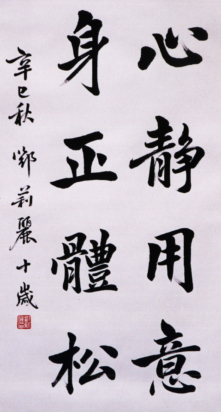 心靜用意
身正體松
辛巳秋 鄧莉麗十歲